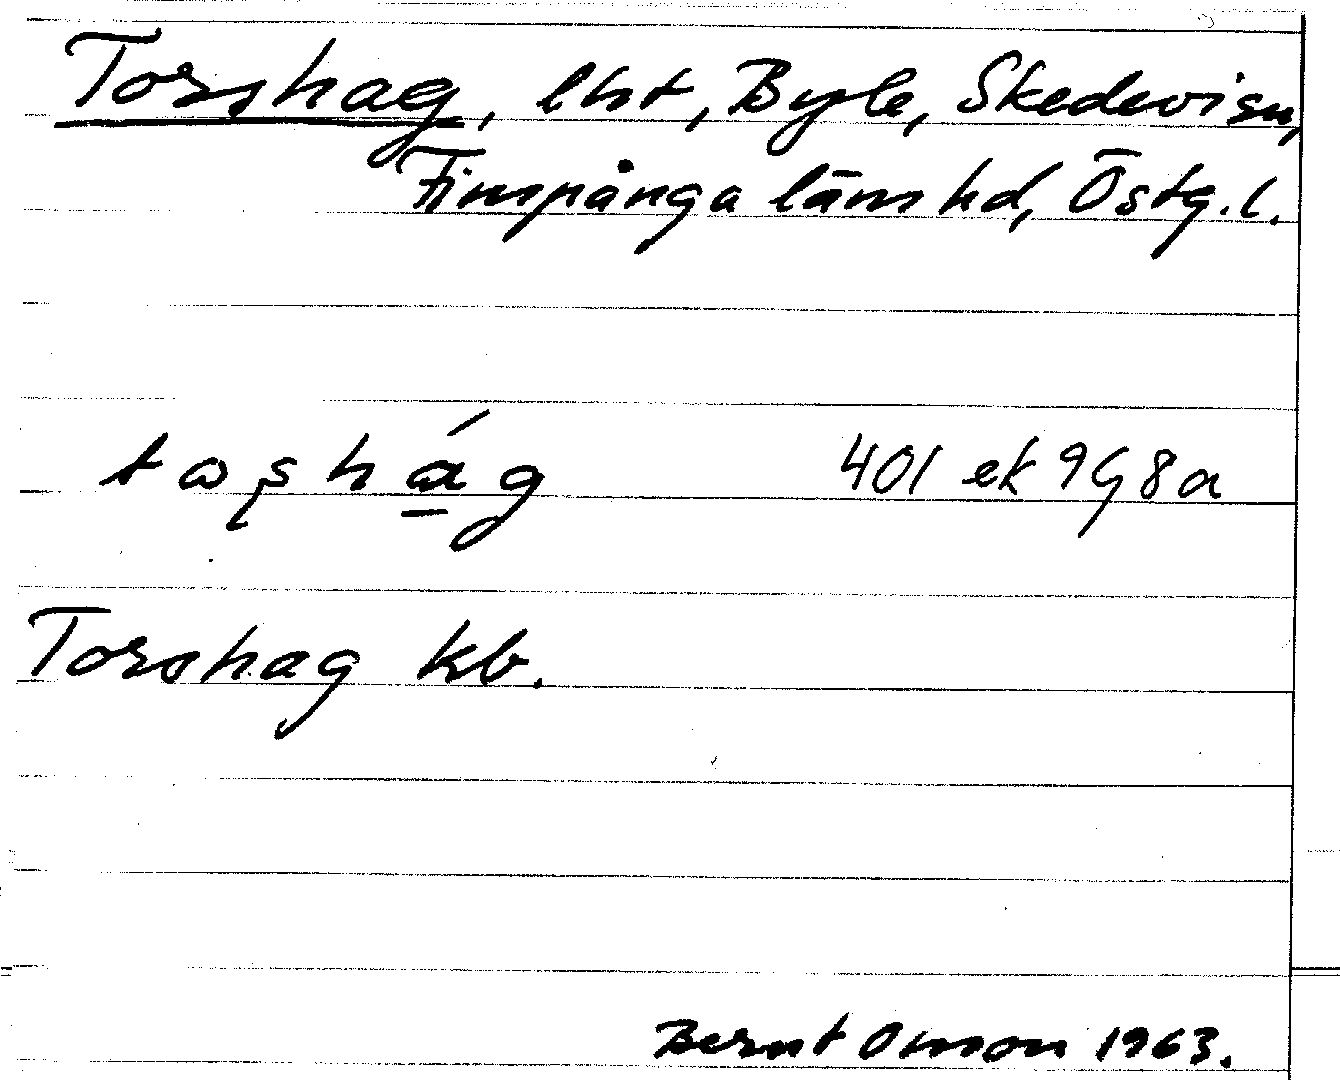 Torshag, lht, Byle, Skedevi sn,
Finspånga läns hd, Östg. l.
tɷʂhág 401 ek 9G8a
Torshag kb.
Bernt Omson 1963.